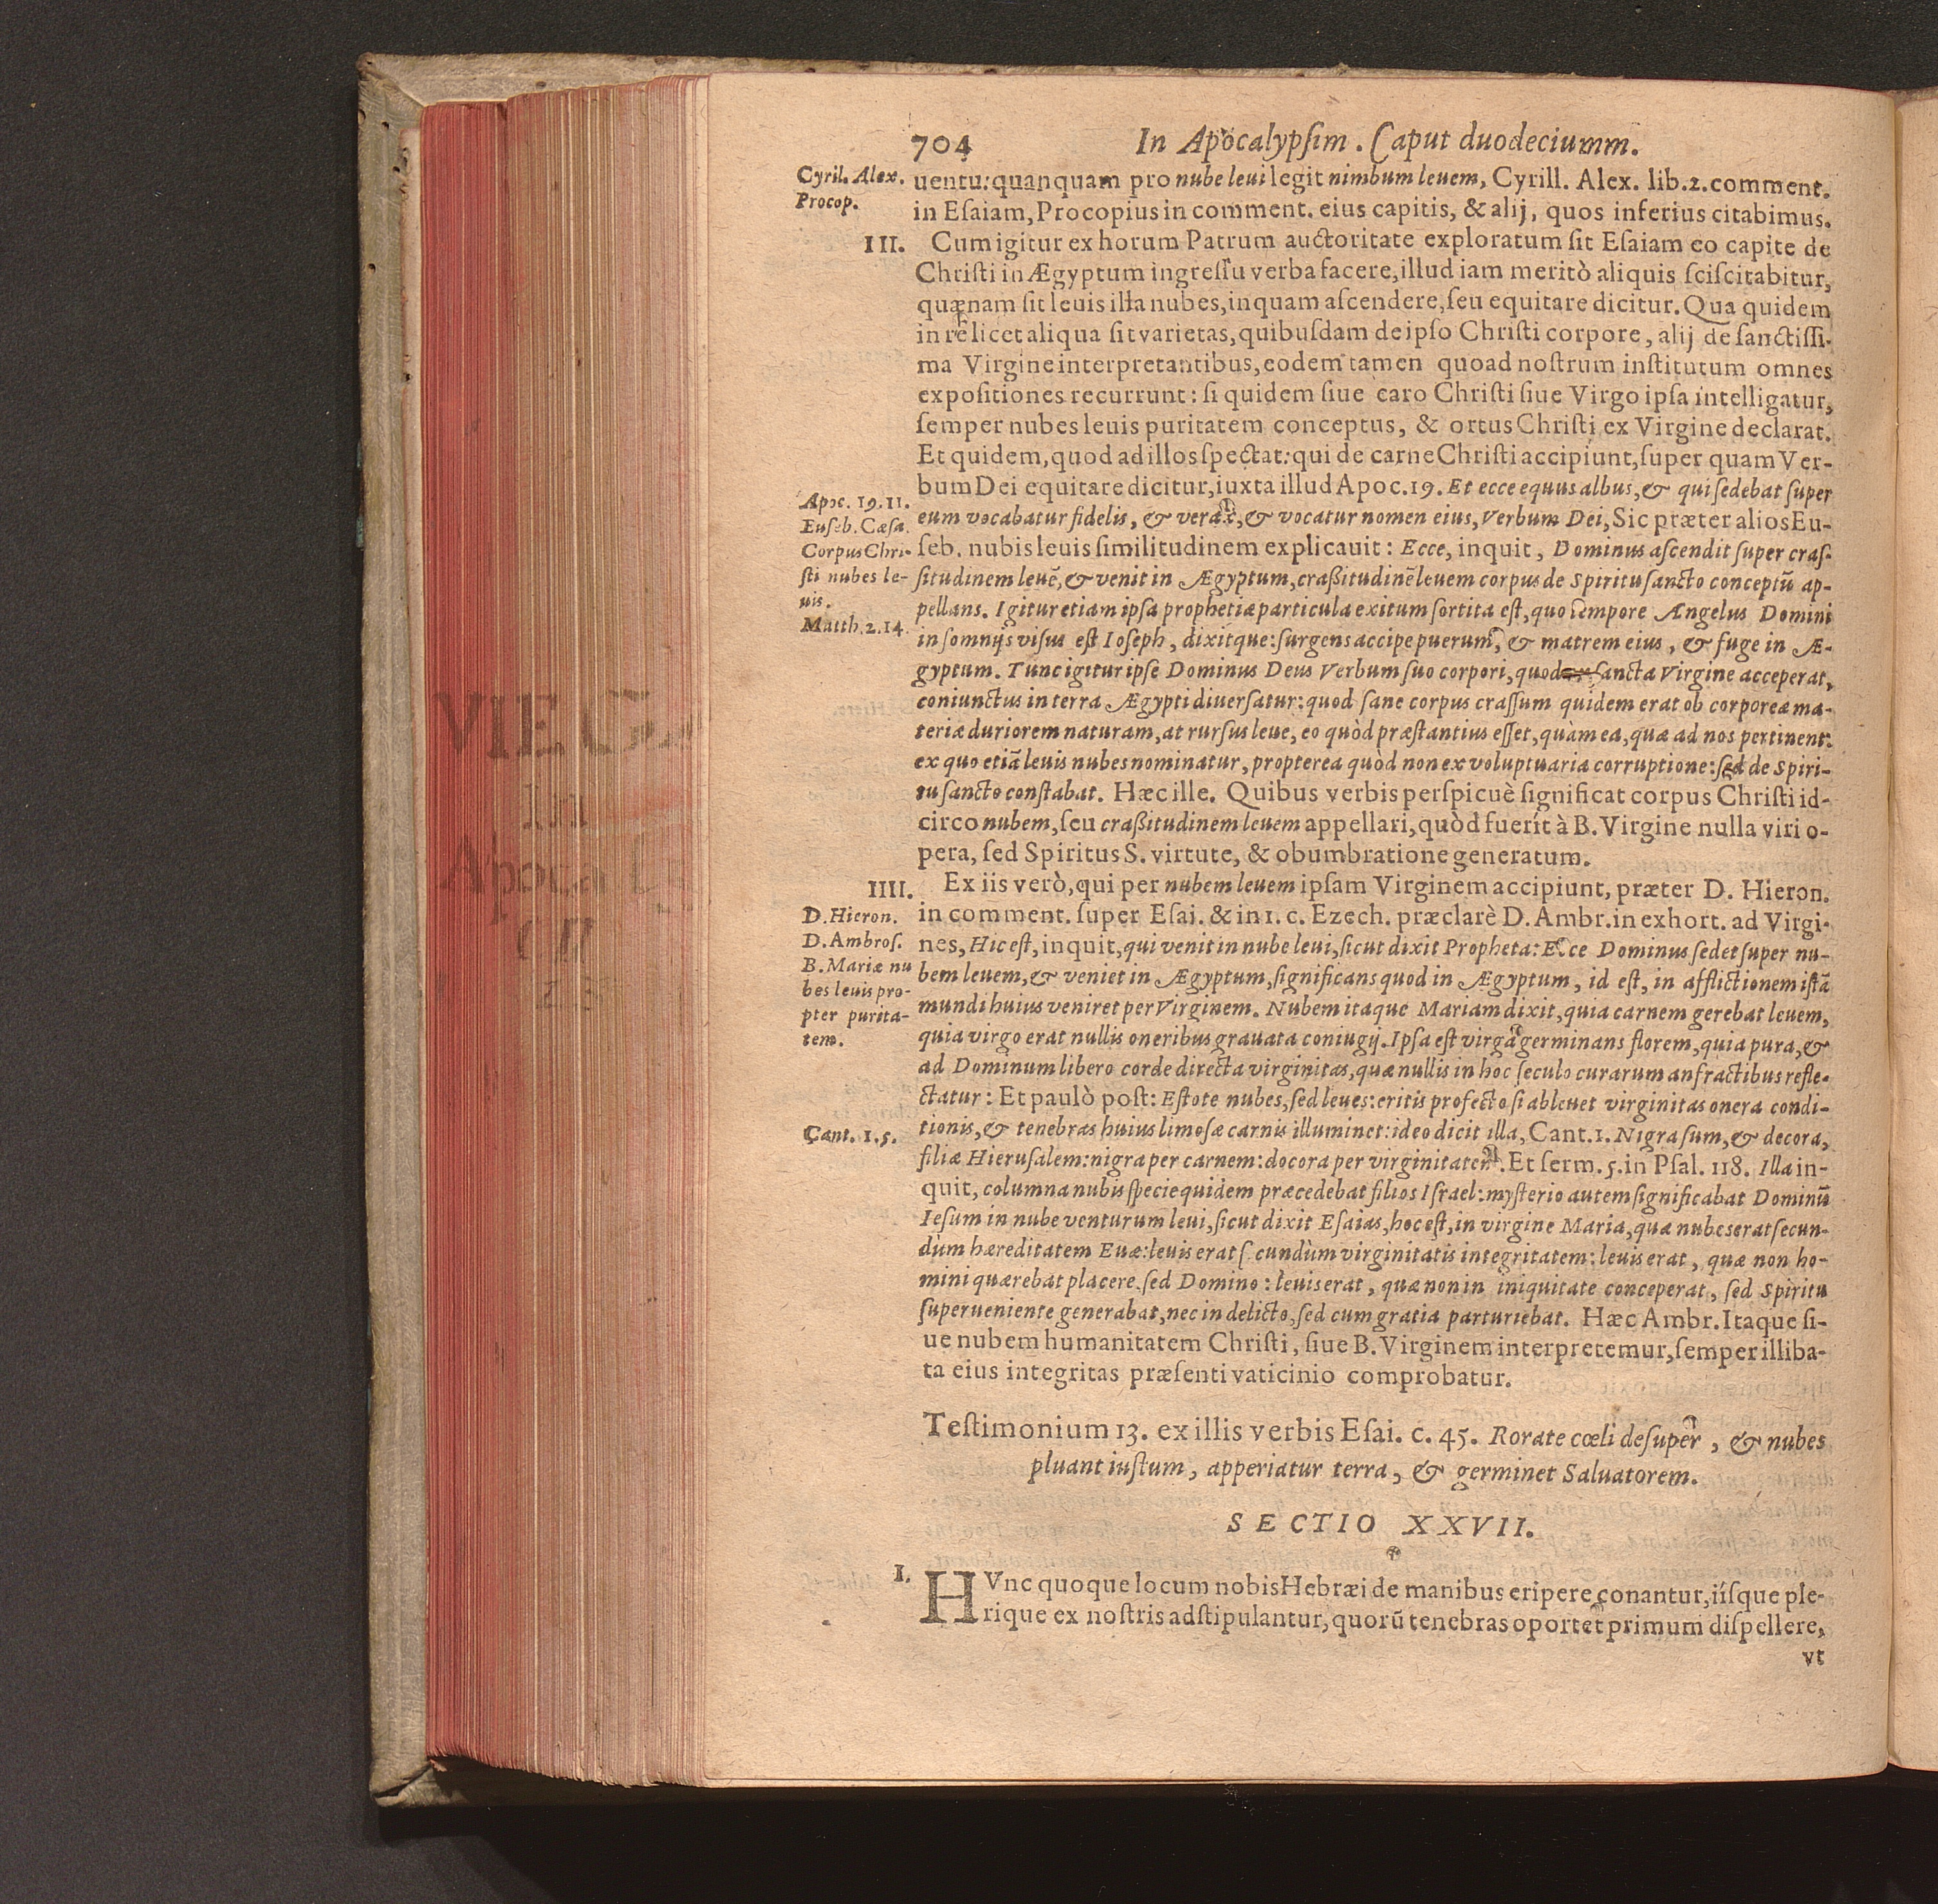 704 In Apocalypſim. Caput duodeciumm.
Cyril. Alex.
Procop.
uentu: quanquam pro nube leui legit nimbum leuem, Cyrill. Alex. lib. 2. comment.
in Eſaiam, Procopius in comment. eius capitis, & alij, quos inferius citabimus.
III. Cum igitur ex horum Patrum auctoritate exploratum ſit Eſaiam eo capite de
Chriſti in Ægyptum ingreſſu verba facere, illud iam meritò aliquis ſciſcitabitur,
quænam ſit leuis illa nubes, in quam aſcendere, ſeu equitare dicitur. Qua quidem
in re licet aliqua ſit varietas, quibuſdam de ipſo Chriſti corpore, alij de ſanctiſſi-
ma Virgine interpretantibus, eodem tamen quoad noſtrum inſtitutum omnes
expoſitiones recurrunt: ſi quidem ſiue caro Chriſti ſiue Virgo ipſa intelligatur,
ſemper nubes leuis puritatem conceptus, & ortus Chriſti ex Virgine declarat.
Et quidem, quod ad illos ſpectat: qui de carne Chriſti accipiunt, ſuper quam Ver-
bum Dei equitare dicitur, iuxta illud Apoc. 19. Et ecce equus albus, & qui ſedebat ſuper
eum vocabatur fidelis, & verax, & vocatur nomen eius, Verbum Dei, Sic præter alios Eu-
ſeb. nubis leuis ſimilitudinem explicauit: Ecce, inquit, Dominus aſcendit ſuper craſ-
ſitudinem leuē, & venit in Ægyptum, craßitudinē leuem corpus de Spiritu ſancto conceptū ap-
pellans. Igitur etiam ipſa prophetiæ particula exitum ſortita eſt, quo tempore Angelus Domini
in ſomnijs viſus eſt Ioſeph, dixitque: ſurgens accipe puerum, & matrem eius, & fuge in Æ-
gyptum. Tunc igitur ipſe Dominus Deus Verbum ſuo corpori, quod ex ſancta Virgine acceperat,
coniunctus in terra Ægypti diuerſatur: quod ſane corpus craſſum quidem erat ob corporeæ ma-
teriæ duriorem naturam, at rurſus leue, eo quòd præſtantius eſſet, quàm ea, quæ ad nos pertinent:
ex quo etiā leuis nubes nominatur, propterea quòd non ex voluptuaria corruptione: ſed de Spiri-
tu ſancto conſtabat. Hæc ille. Quibus verbis perſpicuè ſignificat corpus Chriſti id-
circo nubem, ſeu craßitudinem leuem appellari, quòd fuerit à B. Virgine nulla viri o-
pera, ſed Spiritus S. virtute, & obumbratione generatum.
Apoc. 19. 11.
Euſeb. Cæſa.
Corpus Chri-
ſti nubes le-
uis.
Matth. 2. 14.
IIII. Ex iis verò, qui per nubem leuem ipſam Virginem accipiunt, præter D. Hieron.
in comment. ſuper Eſai. & in 1. c. Ezech. præclarè D. Ambr. in exhort. ad Virgi-
nes, Hic eſt, inquit, qui venit in nube leui, ſicut dixit Propheta: Ecce Dominus ſedet ſuper nu-
bem leuem, & veniet in Ægyptum, ſignificans quod in Ægyptum, id eſt, in afflictionem iſtā
mundi huius veniret per Virginem. Nubem itaque Mariam dixit, quia carnem gerebat leuem,
quia virgo erat nullis oneribus grauata coniugij. Ipſa eſt virga germinans florem, quia pura, &
ad Dominum libero corde directa virginitas, quæ nullis in hoc ſeculo curarum anfractibus refle-
ctatur: Et paulò poſt: Eſtote nubes, ſed leues: eritis profecto ſi ableuet virginitas onera condi-
tionis, & tenebras huius limoſæ carnis illuminet: ideo dicit illa, Cant. 1. Nigra ſum, & decora,
filiæ Hieruſalem: nigra per carnem: docora per virginitatem. Et ſerm. 5. in Pſal. 118. Illa in-
quit, columna nubis ſpecie quidem præcedebat filios Iſrael: myſterio autem ſignificabat Dominū
Ieſum in nube venturum leui, ſicut dixit Eſaias, hoc eſt, in virgine Maria, quæ nubes erat ſecun-
dùm hæreditatem Euæ: leuis erat ſecundùm virginitatis integritatem: leuis erat, quæ non ho-
mini quærebat placere ſed Domino: leuis erat, quæ non in iniquitate conceperat, ſed Spiritu
ſuperueniente generabat, nec in delicto, ſed cum gratia parturiebat. Hæc Ambr. Itaque ſi-
ue nubem humanitatem Chriſti, ſiue B. Virginem interpretemur, ſemper illiba-
ta eius integritas præſenti vaticinio comprobatur.
D. Hieron.
D. Ambroſ.
B. Mariæ nu
bes leuis pro-
pter purita-
tem.
Cant. 1. 5.
Teſtimonium 13. ex illis verbis Eſai. c. 45. Rorate cœli deſuper, & nubes
pluant iuſtum, apperiatur terra, & germinet Saluatorem.
SECTIO XXVII.
I. HVnc quoque locum nobis Hebræi de manibus eripere conantur, iíſque ple-
rique ex noſtris adſtipulantur, quorū tenebras oportet primum diſpellere,
vt
VIEGA
in
Apoca